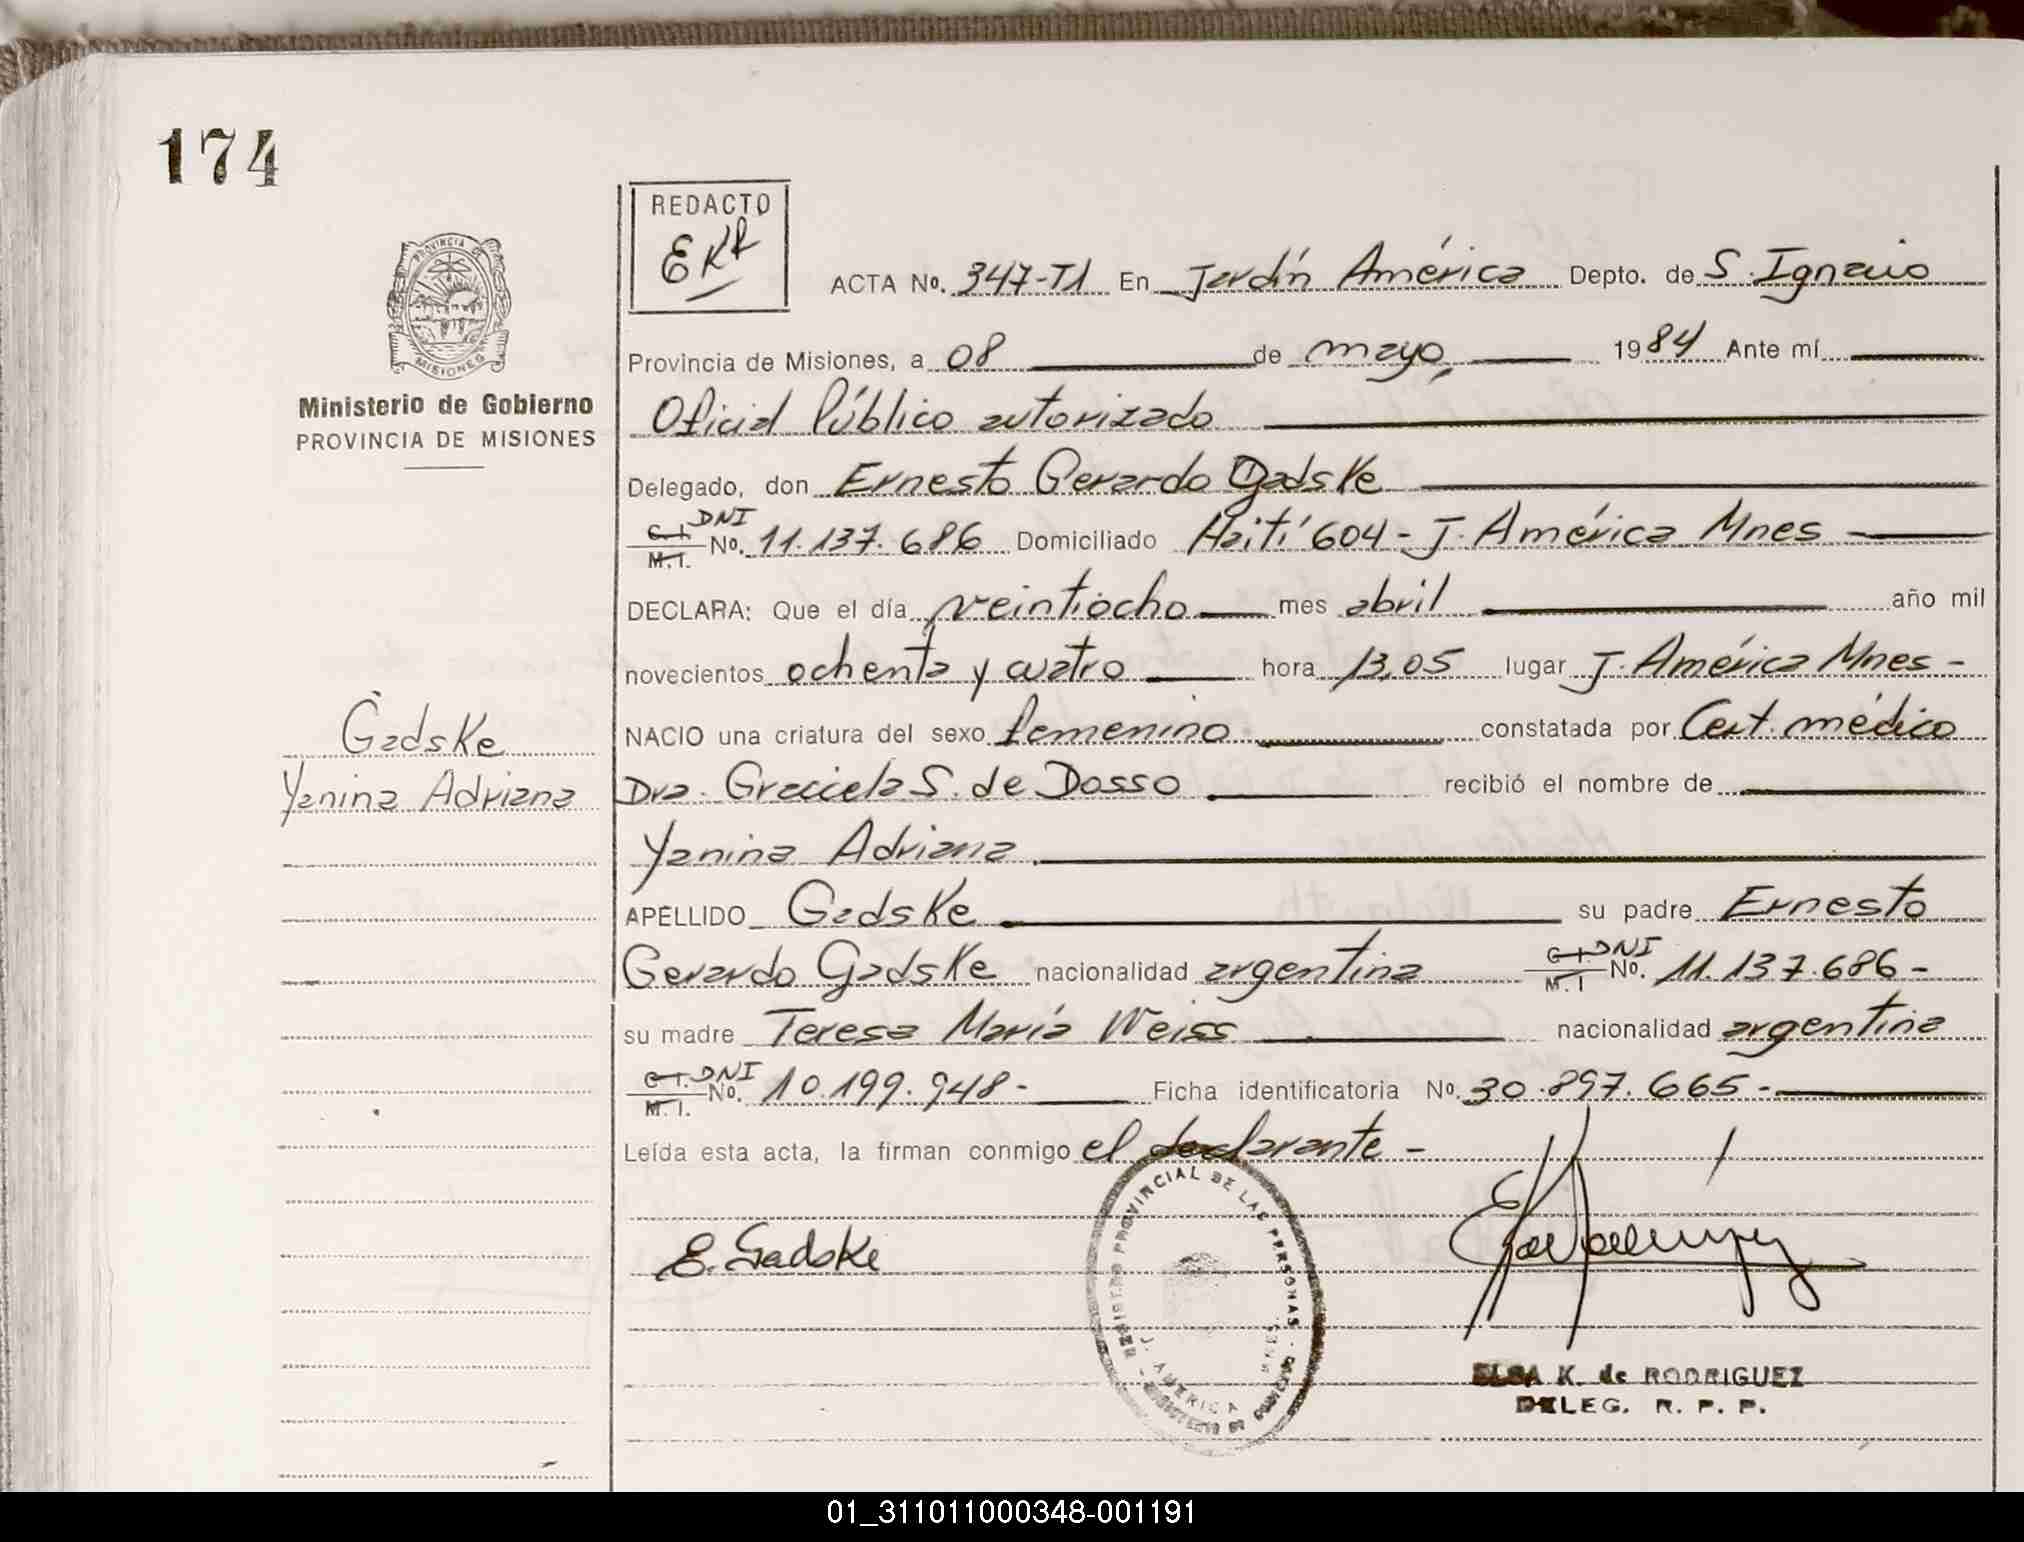 174
REDACTO
EKR
ACTA No. 347-T1 En Jardín América Depto. de S. Ignacio
PROVINCIA DE MISIONES
Provincia de Misiones, a 08 de mayo, 1984 Ante mí
Ministerio de Gobierno
PROVINCIA DE MISIONES
Oficial Público autorizado
Delegado, don Ernesto Gerardo Gadske
C.I. DNI M.I. No. 11.137.686 Domiciliado Haití 604 - J. América Mnes
DECLARA: Que el día veintiocho mes abril año mil
novecientos ochenta y cuatro hora 13,05 lugar J. América Mnes -
Gadske
NACIO una criatura del sexo femenino constatada por Cert. médico
Yanina Adriana
Dra. Graciela S. de Dosso recibió el nombre de
Yanina Adriana
APELLIDO Gadske su padre Ernesto
Gerardo Gadske nacionalidad argentina C.I. DNI M.I No. 11.137.686 -
su madre Teresa María Weiss nacionalidad argentina
C.I. DNI M.I. No. 10.199.948 - Ficha identificatoria No. 30.897.665 -
Leída esta acta, la firman conmigo el declarante -
E. Gadske
REGISTRO PROVINCIAL DE LAS PERSONAS
J. AMERICA
MNES
ELSA K. de RODRIGUEZ
DELEG. R. P. P.
01_311011000348-001191